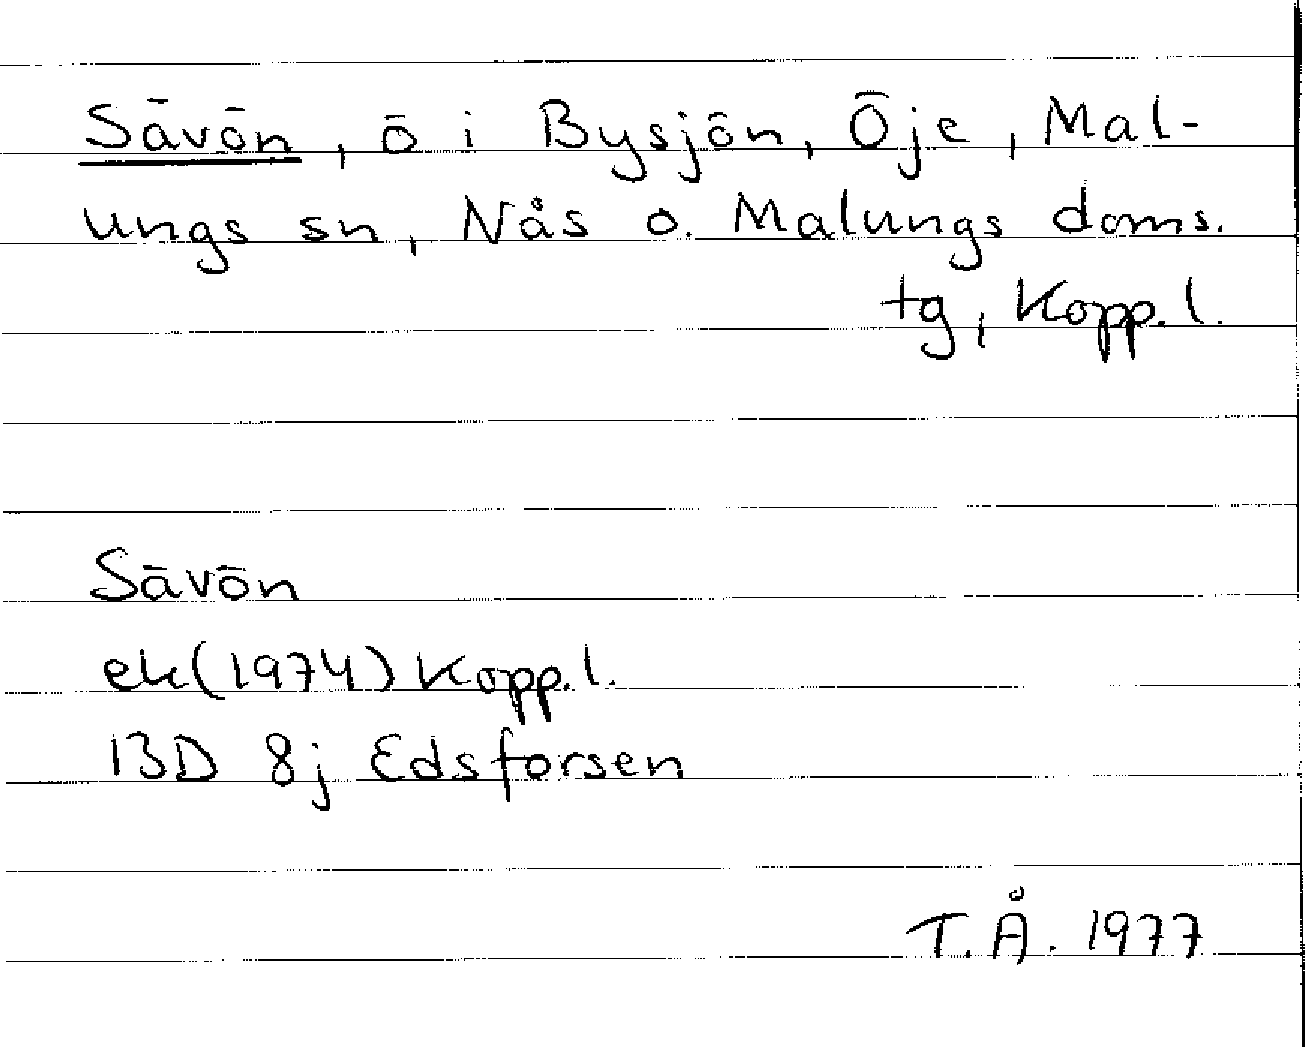 Sävön, ö i Bysjön, Öje, Mal-
ungs sn, Nås o. Malungs doms.
tg, Kopp. l.
Sävön
ek(1974) Kopp. l.
13D 8j Edsforsen
T. Å. 1977